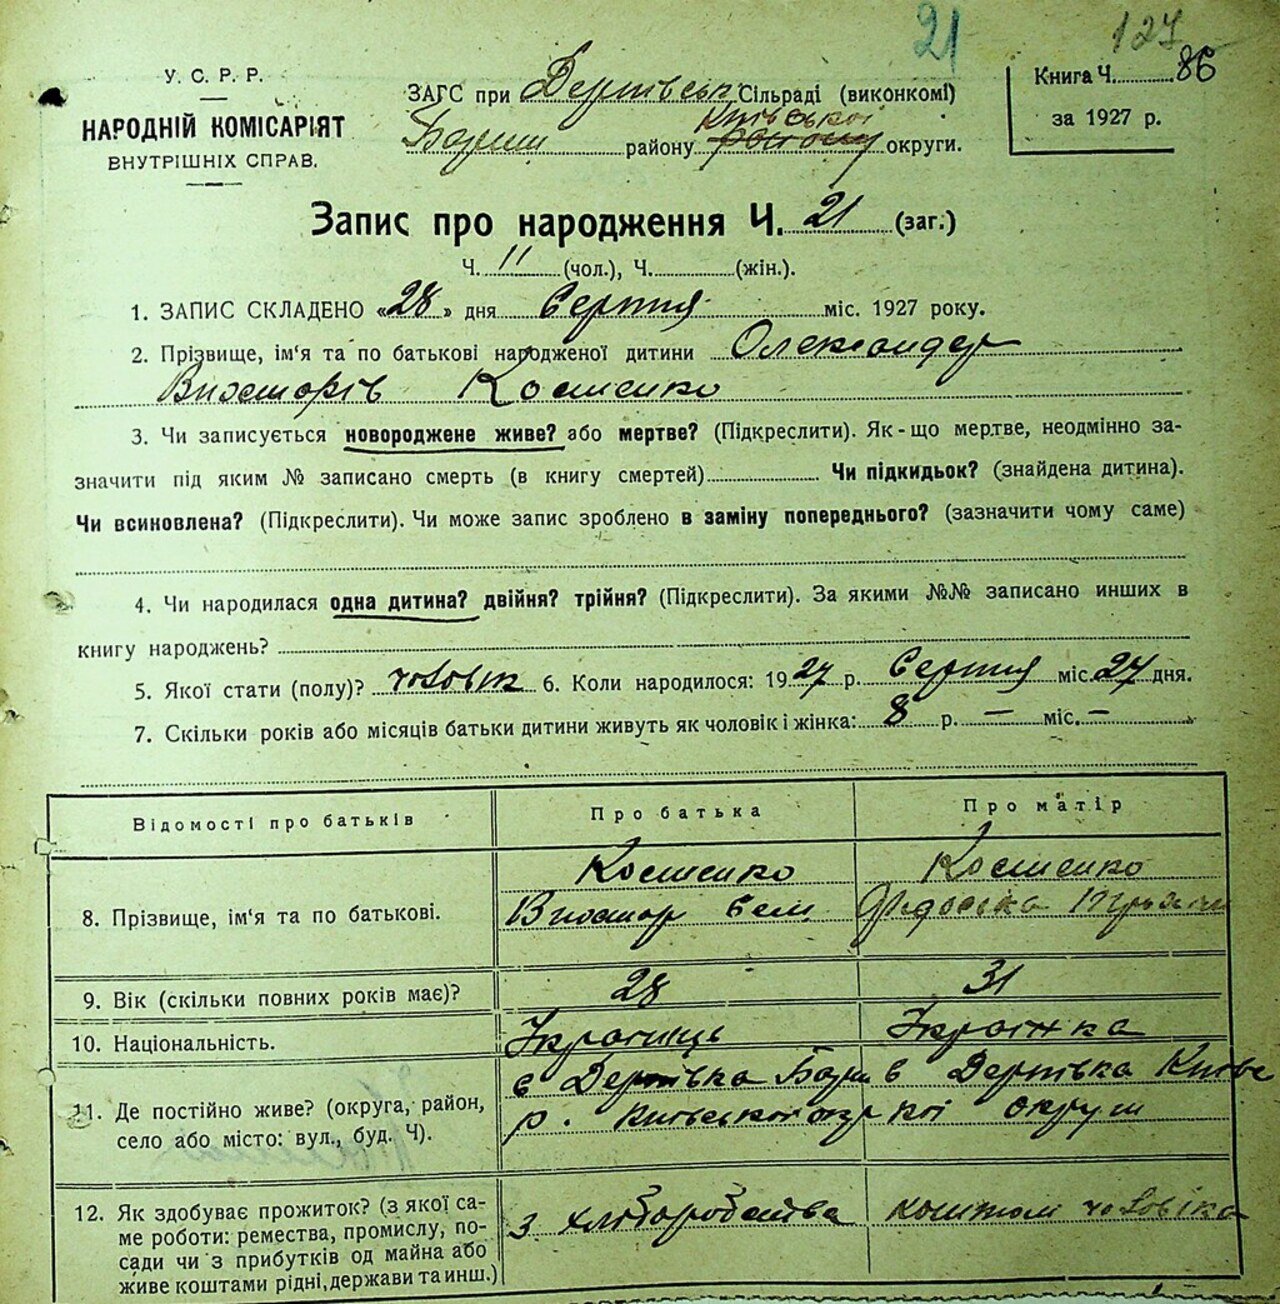 21
127
У. С. Р. Р.
НАРОДНІЙ КОМІСАРІЯТ
ВНУТРІШНІХ СПРАВ.
ЗАГС при Дертівськ Сільраді (виконкомі)
району Київської округи.
Книга Ч. 86
за 1927 р.
Запис про народження Ч. 21 (заг.)
Ч. 11 (чол.), Ч. (жін.).
1. ЗАПИС СКЛАДЕНО «28» дня Серпня міс. 1927 року.
2. Прізвище, ім'я та по батькові народженої дитини Олександер
Костенко
3. Чи записується новороджене живе? або мертве? (Підкреслити). Як-що мертве, неодмінно за-
значити під яким № записано смерть (в книгу смертей) Чи підкидьок? (знайдена дитина).
Чи всиновлена? (Підкреслити). Чи може запис зроблено в заміну попереднього? (зазначити чому саме)
4. Чи народилася одна дитина? двійня? трійня? (Підкреслити). За якими №№ записано инших в
книгу народжень?
5. Якої стати (полу)? чоловік 6. Коли народилося: 1927 р. Серпня міс. 27 дня.
7. Скільки років або місяців батьки дитини живуть як чоловік і жінка: 8 р. — міс. —
Відомості про батьків Про батька Про матір
8. Прізвище, ім'я та по батькові. Костенко Костенко
9. Вік (скільки повних років має)? 28 31
10. Національність. Українець Українка
11. Де постійно живе? (округа, район, с Дертівка с Дертівка Київс
село або місто: вул., буд. Ч). р. Київської окр кої округи
12. Як здобуває прожиток? (з якої са-
ме роботи: ремества, промислу, по-
сади чи з прибутків од майна або
живе коштами рідні, держави та инш.)
з хліборобства коштом чоловіка